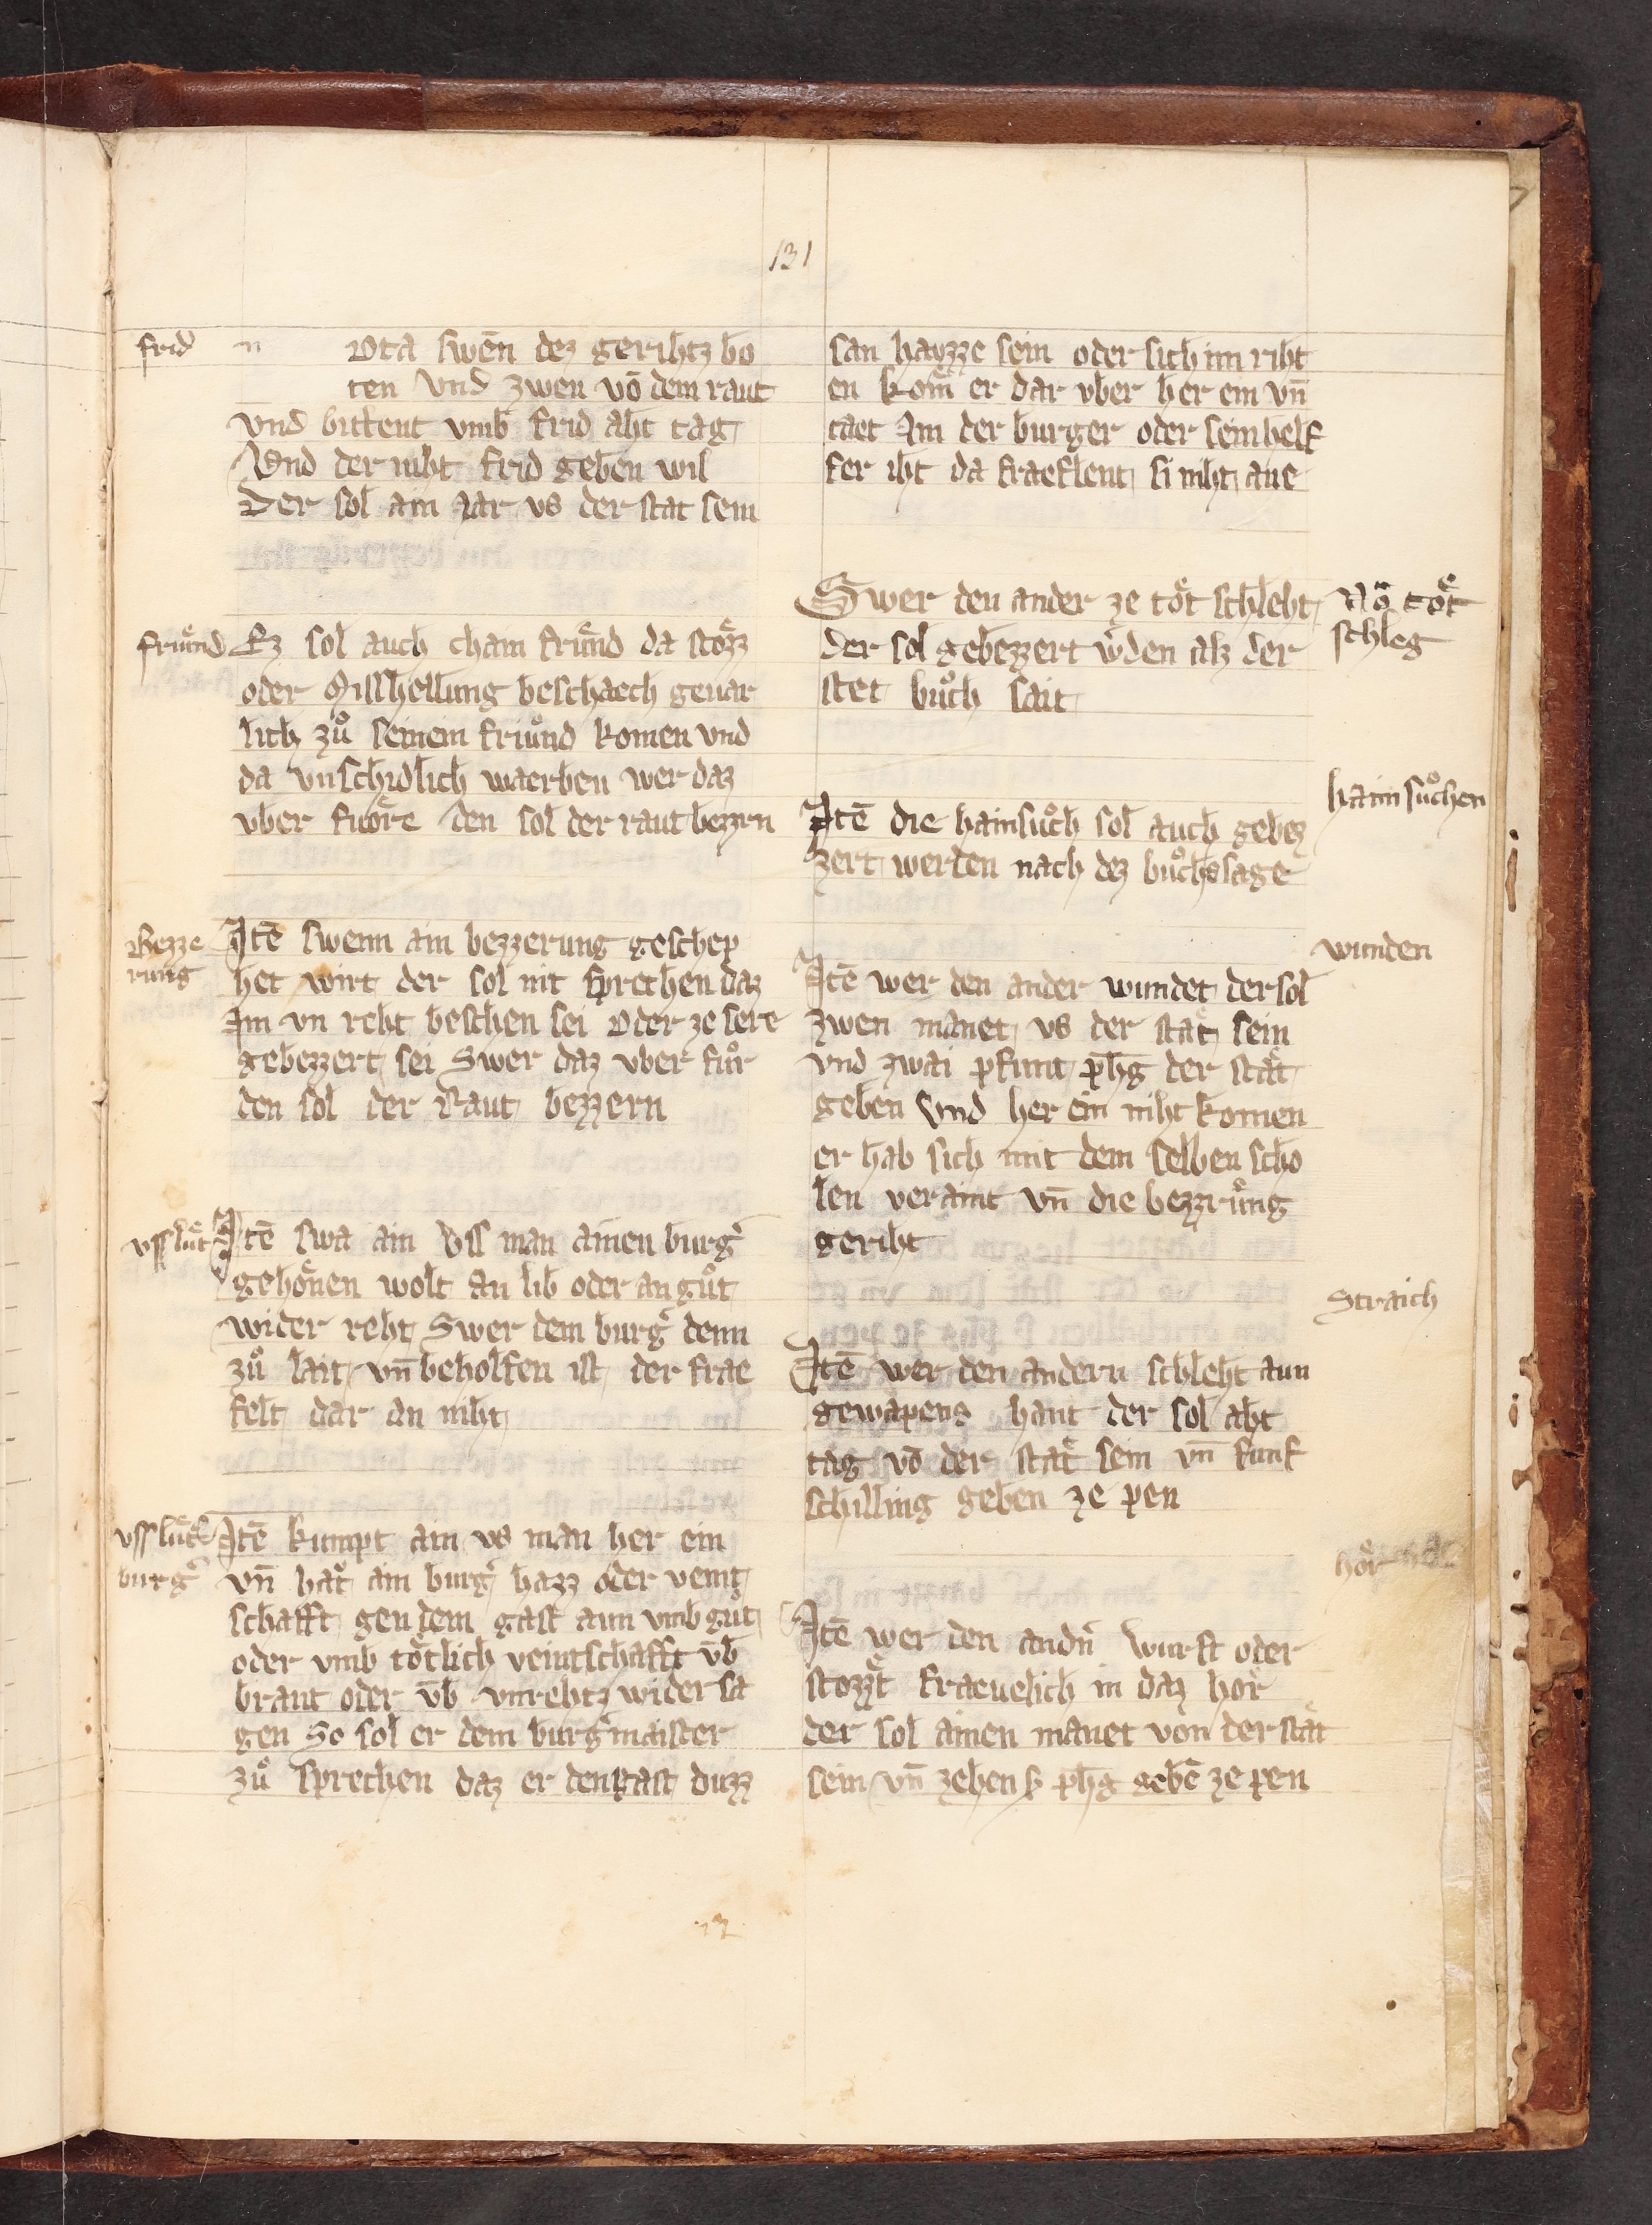 131
frid n ota swēn dez gerihtz bo
ten vnd zwen vō dem raut
vnd bittent vmb frid aht tag
Vnd der niht frid geben wil
Der sol ain Jar vs der stat sein
friuͤnd Ez sol auch chain friuͤnd da stoͤzz
oder Misshellung beschaech geuar
lich zuͦ seinem friuͤnd komen vnd
da vnschidlich waerben wer daz
vber fuͤore den sol der raut bezzrn
Bezze
rung
Itē swenn ain bezzerung geschep
het wirt der sol nit sprechen daz
Im vn reht beschen sei Oder ze sere
gebezzert sei Swer daz vber fuͦr
den sol der Raut bezzern
vss luͤt Itē swa ain vss man ainen burg͛
gehoͤnen wolt an lib oder an guͦt
wider reht Swer dem burg͛ denn
zuͦ lait vn̄ beholfen ist der frae
felt dar an niht
vss luͤt
burg͛
Itē kumpt ain vs man her ein
vn̄ haͤt ain burg͛ hazz oder veint
schafft gen dem gast ann vmb guͦt
oder vmb toͤtlich veintschafft vb̄
brant oder vb̄ vnrehtz wider sa
gen So sol er dem burg͛maister
zuͦ sprechen daz er den gast duzz
san hayzze sein oder sich im riht
en kom̄ er dar vber her ein vn̄
taet Im der burger oder sein helf
fer iht da fraeflent si niht ane
Swer den ander ze toͤt schleht
der sol gebezzert w͛den alz der
stet buͦch sait
Vō toͤt
schleg
haimsuͦchen
Itē die haimsuͦch sol auch gebez
zert werden nach dez buͦchs sage
wunden
Itē wer den ander wundet der sol
zwen manet vs der staͤt sein
vnd zwai pfunt phḡ der staͤt
geben vnd her ein niht komen
er hab sich mit dem selben scho
len veraint vn̄ die bezzruͦng
geriht
Straich
Itē wer den andern schleht ann
gewapens hant der sol aht
tag vō der staͤt sein vn̄ funf
schilling geben ze pen
hoͤr
Itē wer den andn͛ wurft oder
stozzt fraeuelich in daz hoͤr
der sol ainen manet von der staͤt
sein vn̄ zehen ß phḡ gebē ze pen